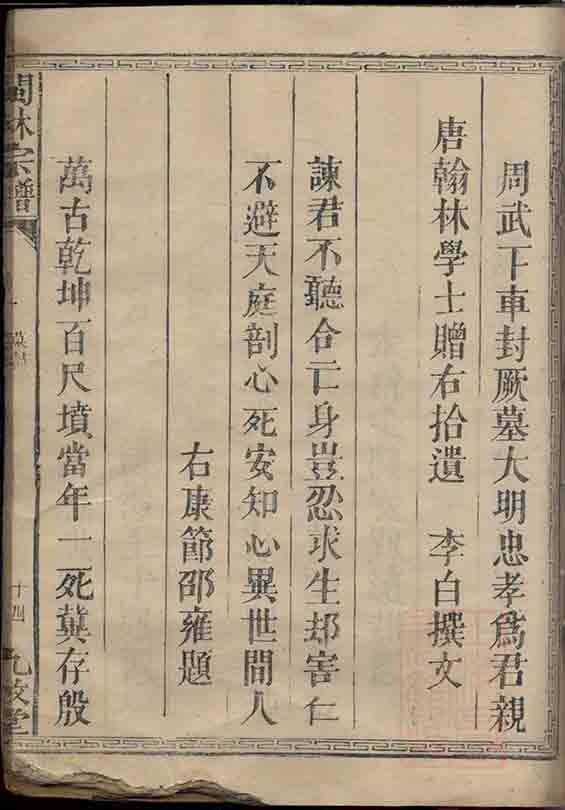 周武下車封厥墓大明忠孝爲君親
唐翰林學士贈右拾遺　李白撰文
諫君不聽合亡身豈忍求生却害仁
不避天庭剖心死安知心異世間人
右康節邵雍題
萬古乾坤百尺墳當年一死冀存殷
林宗譜
十四
九牧堂